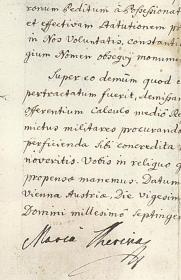 ronum Peditum à Possessionat
et effectivam Statutionem pr
in Nos Voluntatis, constanti
gium Nomen obsequij monume
Super eo demùm quod e
pertractatum fuerit, demissam
offerentium Calculo mediò Re
mictus militares procurando
perficienda Sibi concredita v
noveritis. Vobis in reliquo g
propensæ manemus. Datum
Vienna Austria, Die vigesim
Domini millesimò Septinge
Maria Theresia